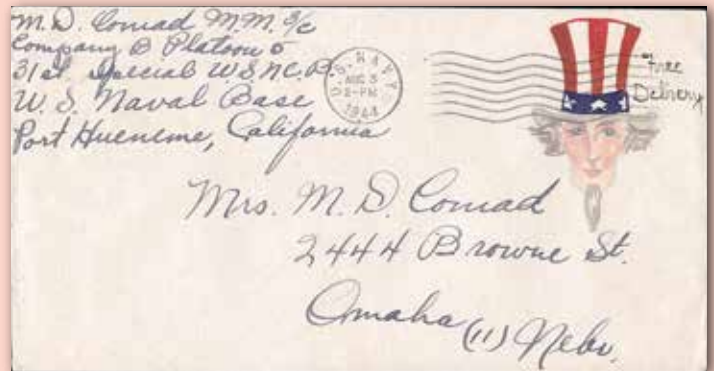 M. D. Conrad M.M. 3/c
Company B Platoon 5
31st Special U.S.N.C.B.
U. S. Naval Base
Port Hueneme, California
U.S. NAVY
AUG 3
PM
1944
Free
Delivery
Mrs. M. D. Conrad
2444 Browne St.
Omaha (11) Nebr.